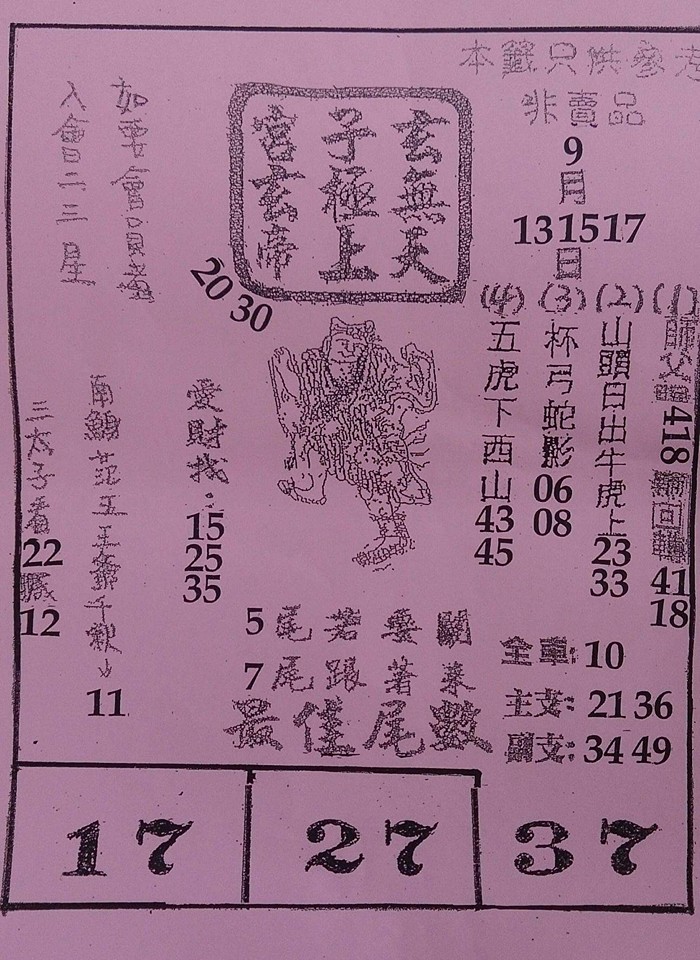 本籤只供參考
非賣品
9
月
131517
日
玄無天
子極上
宮玄帝
20 30
入會二三星
(1)
師父
418
回
41
18
(2)
山頭日出牛虎上
23
33
(3)
杯弓蛇影
06
08
(4)
五虎下西山
43
45
愛財找:
15
25
35
南鯤
王
千秋
11
三太子看
22
12
5尾若要開
7尾跟著來
最佳尾數
全車: 10
主支: 21 36
副支: 34 49
17
27
37